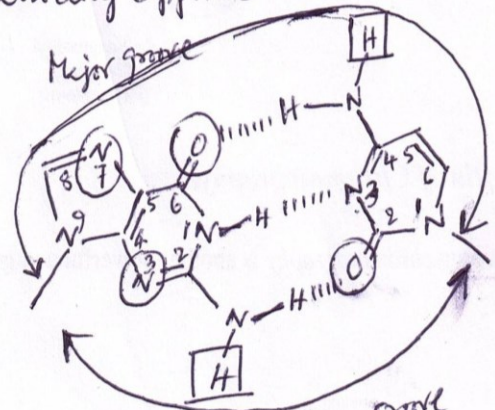 Major groove
H
H N
N O
7
8 5 6 4 5 6
N 9 4 1 N H N 3 1 N
N 3 2 2 O
N H
H
groove